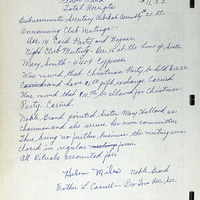 Total Receipts 11.52
Announcing Club Meetings
Dec 10 Card Party and Bazaar
Night Club Meeting Dec 15 at the home of Sister
Mary Smith - 4409 Cypress
Was moved that Christmas Party be held Dec 22
Carried and have gift exchange. Carried
Was moved that $10.00 be allowed for Christmas
Party. Carried.
Noble Grand pointed Sister Mary Holland as
chairman and she secure her own committee
There being no further business the meeting was
closed in regular form
All Rituals accounted for.
Helen Miles Noble Grand
Esther L. Carroll - Pro Tem Rec. Sec.